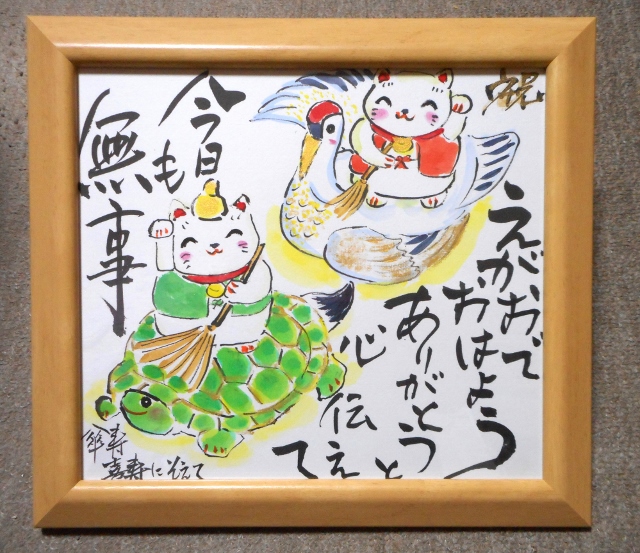 祝
えがおで
おはよう
ありがとうと
心伝えて
今日も
無事
傘寿
喜寿にそえて